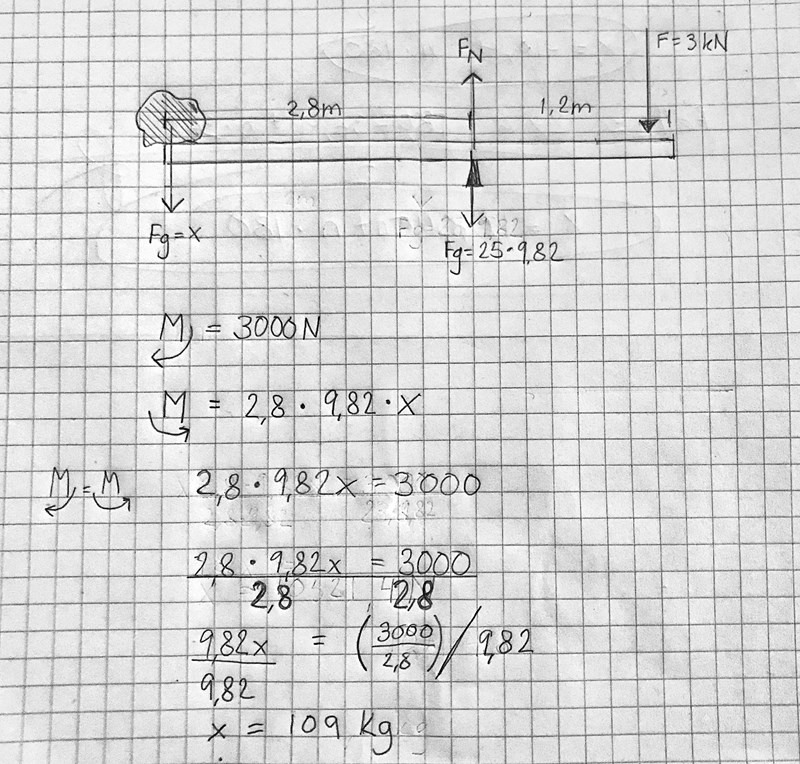 F_N
F = 3kN
2,8m 1,2m
Fg = x
Fg = 25 · 9,82
M = 3000N
M = 2,8 · 9,82 · x
M = M 2,8 · 9,82x = 3000
2,8 · 9,82x = 3000
2,8 2,8
9,82x = (3000/2,8) / 9,82
9,82
x = 109 kg